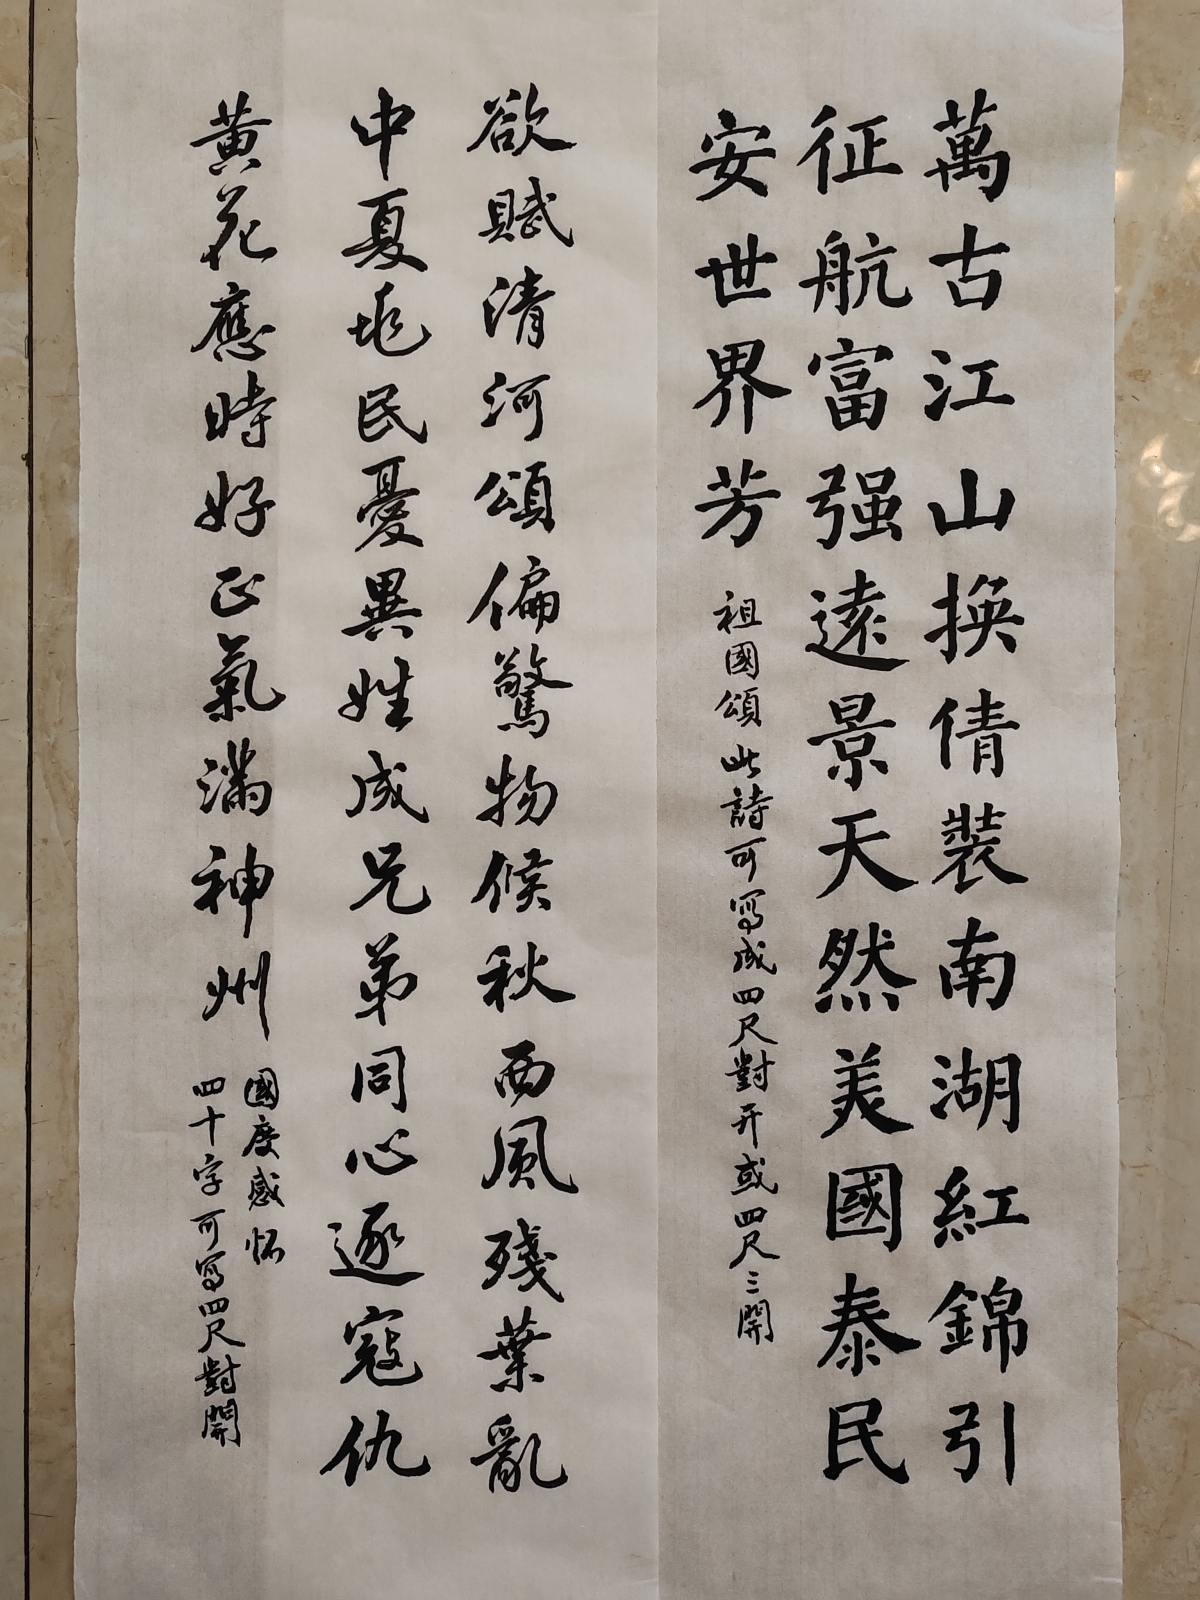 萬古江山換倩裝南湖紅錦引
征航富强遠景天然美國泰民
安世界芳
祖國頌此詩可寫成四尺對开或四尺三開
欲賦清河頌偏驚物候秋西風殘葉亂
中夏民憂異姓成兄弟同心逐寇仇
黄花應時好正氣滿神州
國慶感怀
四十字可寫四尺對開